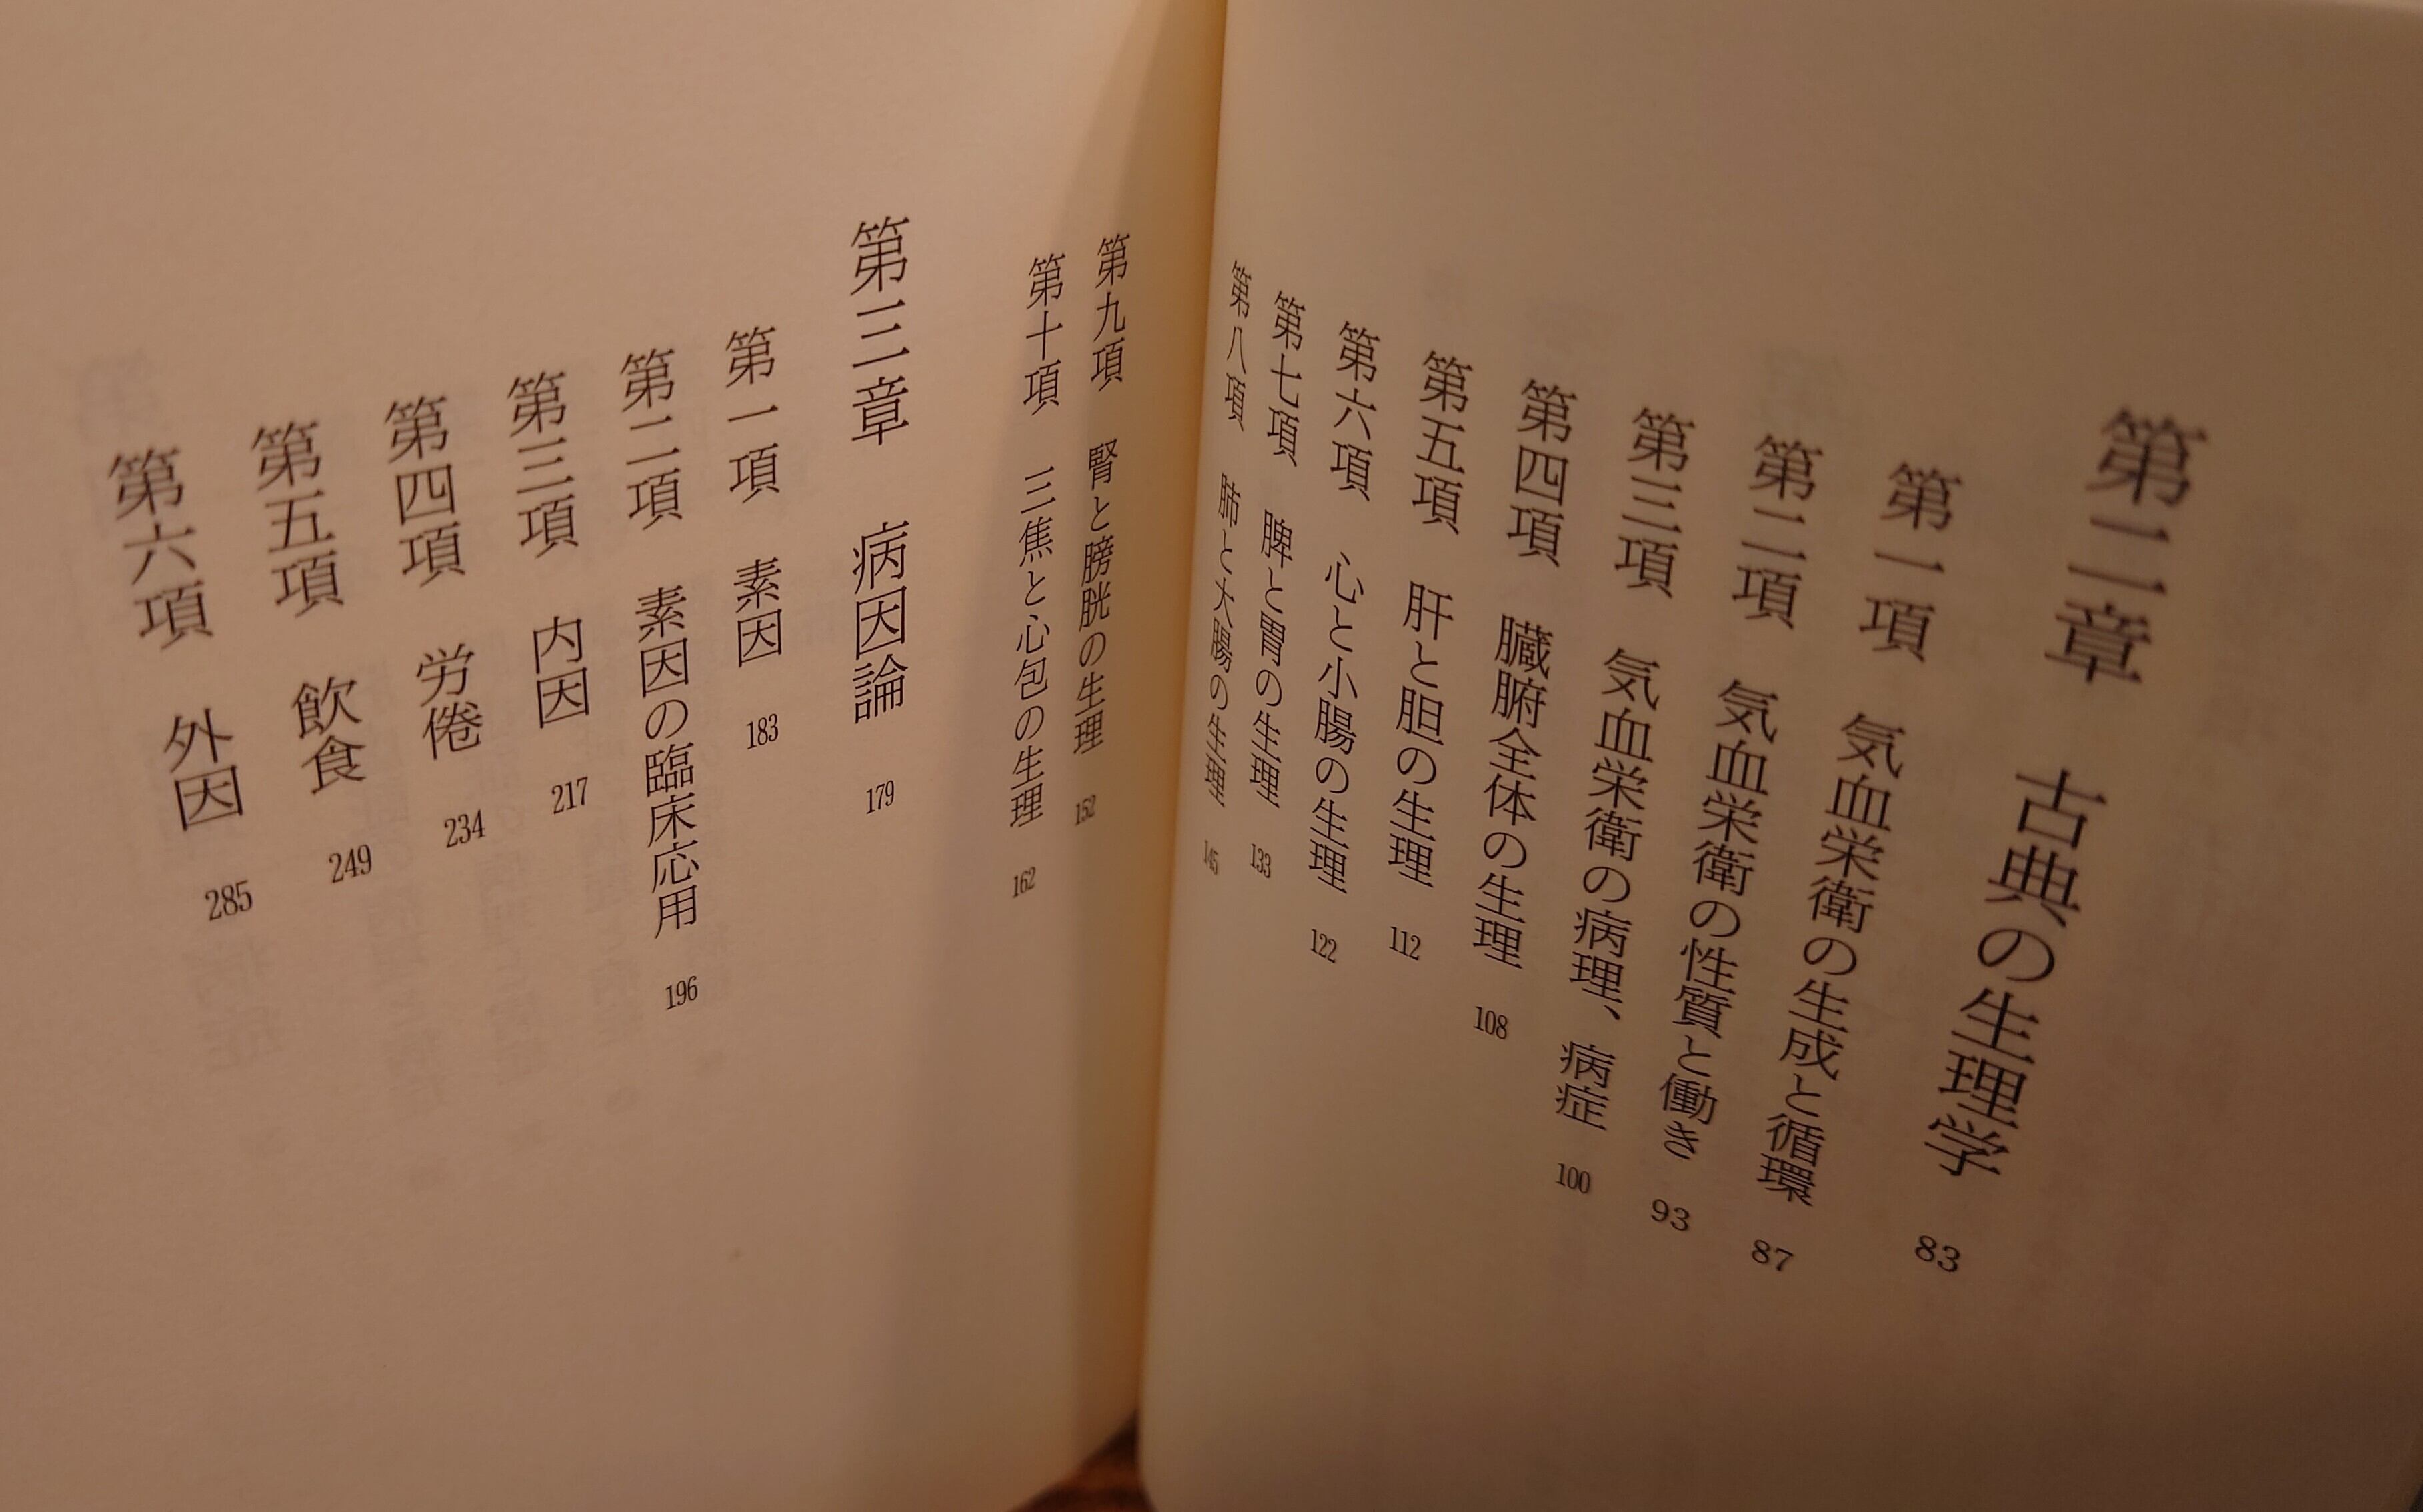 第二章　古典の生理学　83
第一項　気血栄衛の生成と循環　87
第二項　気血栄衛の性質と働き　93
第三項　気血栄衛の病理、病症　100
第四項　臓腑全体の生理　108
第五項　肝と胆の生理　112
第六項　心と小腸の生理　122
第七項　脾と胃の生理　133
第八項　肺と大腸の生理　145
第九項　腎と膀胱の生理　152
第十項　三焦と心包の生理　162
第三章　病因論　179
第一項　素因　183
第二項　素因の臨床応用　196
第三項　内因　217
第四項　労倦　234
第五項　飲食　249
第六項　外因　285